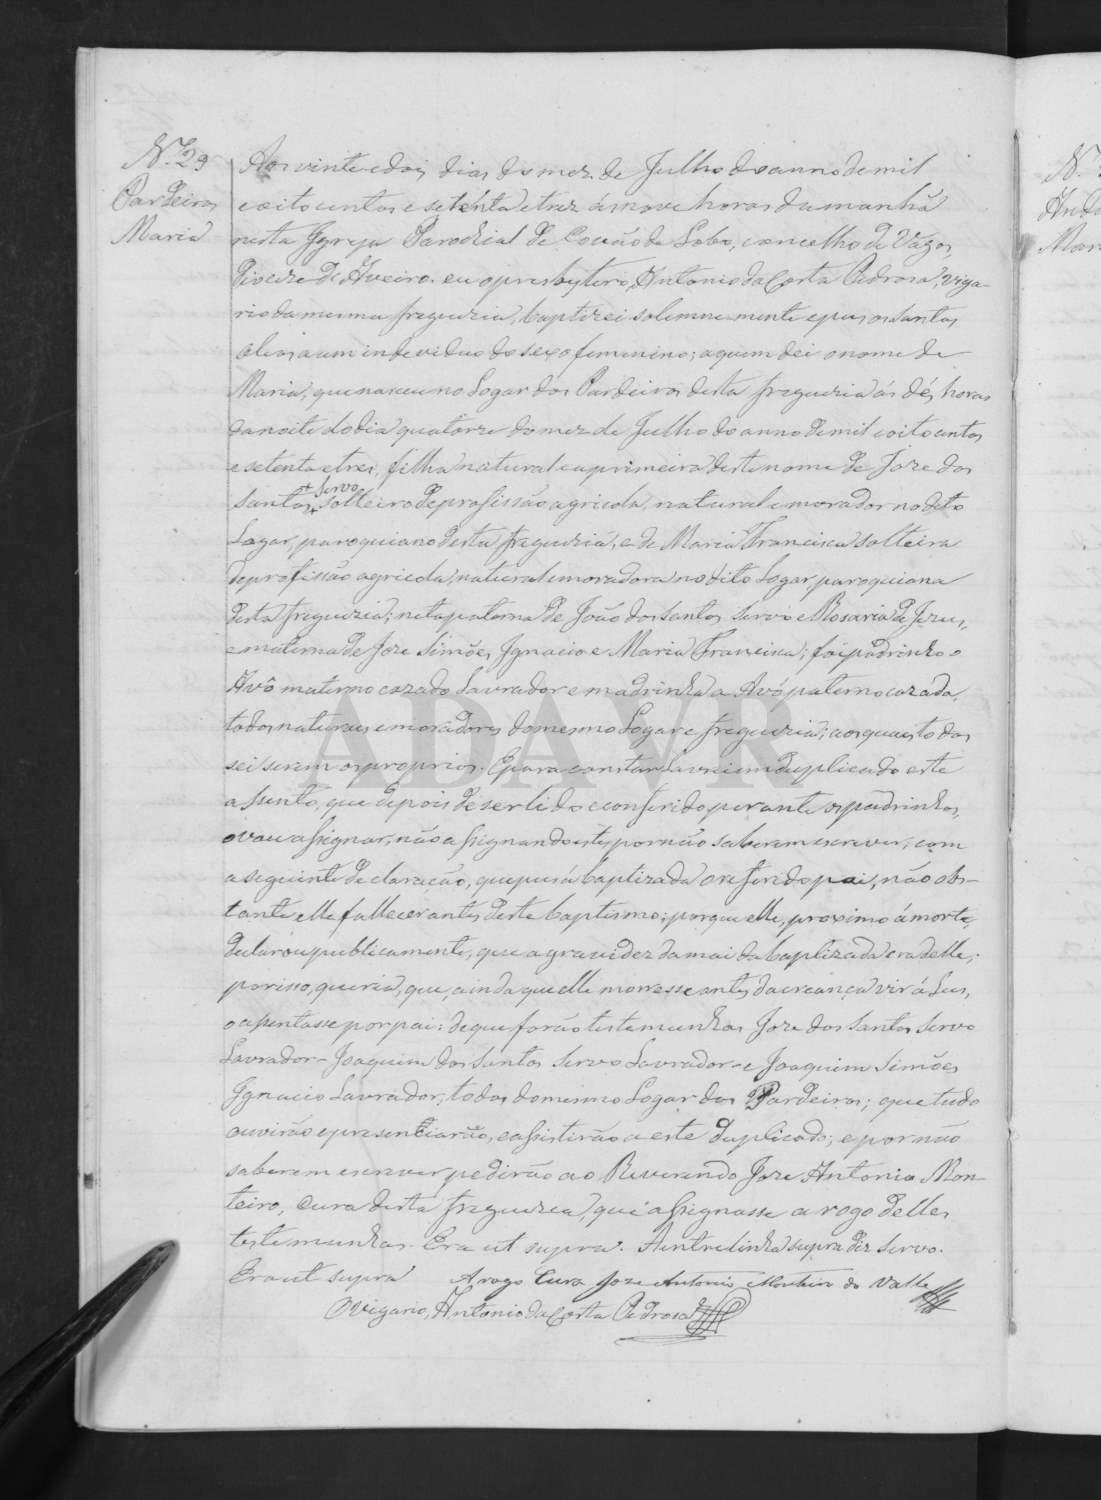 N.º 29
Pardeiros
Maria
Aos vinte e dois dias do mez de Julho do anno de mil
e oitocentos e setenta e trez ás nove horas da manhã
nesta Igreja Parochial de Covão do Lobo, concelho de Vagos,
Diocize de Aveiro. eu o presbytero, Antonio da Costa Pedrosa, viga-
rio da mesma freguezia, baptizei solemne-mente e pus os santos
oleos a um indeviduo do sexo femenino; a quem dei o nome de
Maria, que nasceu no Logar dos Pardeiros desta freguezia ás dés horas
da noite do dia quatorze do mez de Julho do anno de mil e oitocentos
e setenta e tres, filha natural e a primeira deste nome de Joze dos
+ servo
Santos + solteiro de profissão agricola, natural e morador no dito
Logar, paroquiano desta freguezia, e de Maria Francisca solteira
de profissão agricola, natural e moradora no dito Logar, paroquiana
desta freguezia; neta paterna de João dos Santos Servo e Rosaria de Jezus,
e materna de Joze Simões Ignacio e Maria Francisca; foi padrinho o
Avô materno cazado Lavrador e madrinha a Avó paterna cazada,
todos naturaes e moradores do mesmo Logar e freguezia; aos quaes todos
sei serem os proprios. E para constar lavrei em duplicado este
assento, que depois de ser lido e conferido perante os padrinhos,
o vou assignar, não assignando estes por não saberem escrever; com
a seguinte declaração, que puz á baptizada o referido pai, não obs-
tante elle fallecer antes deste baptismo; porque elle, proximo á morte,
declarou publicamente, que a gravidez da mai da baptizada era delle;
por isso, queria, que, ainda que elle morresse antes da creança vir á Lus,
o assentasse por pai: de que forão testemunhas Joze dos Santos Servo
Lavrador - Joaquim dos Santos Servo Lavrador - e Joaquim Simões
Ignacio Lavrador, todos do mesmo Logar dos Pardeiros; que tudo
ouvirão e presenciarão, e assistirão a este duplicado; e por não
saberem escrever pedirão ao Reverendo Joze Antonio Mon-
teiro, Cura desta freguezia, que assignasse a rogo delles
testemunhas. Era ut supra. A entrelinha supra diz Servo.
Era ut supra A rogo Cura Joze Antonio do Valle
O Vigario, Antonio da Costa Pedrosa
N.º
Mari
ADAVR